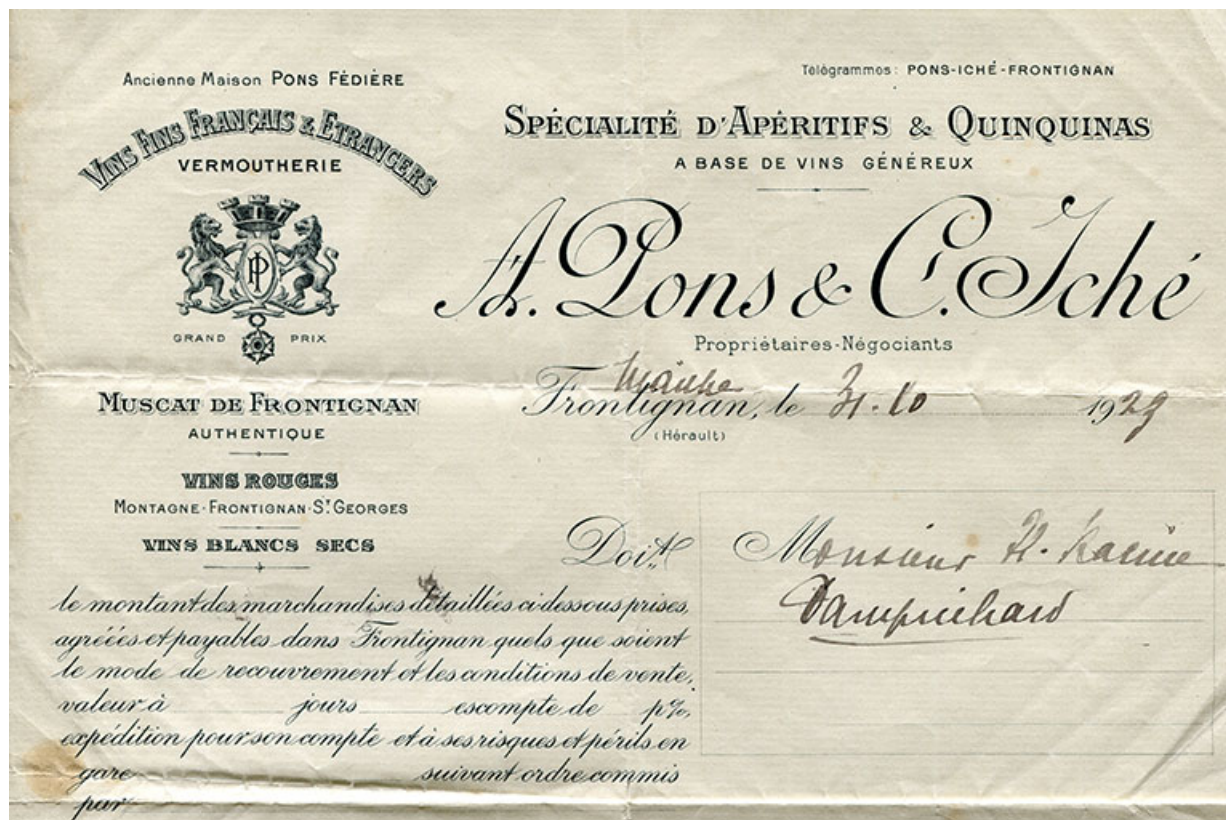 Ancienne Maison PONS FÉDIÈRE
VINS FINS FRANÇAIS & ETRANGERS
VERMOUTHERIE
GRAND PRIX
MUSCAT DE FRONTIGNAN
AUTHENTIQUE
VINS ROUGES
MONTAGNE-FRONTIGNAN-ST GEORGES
VINS BLANCS SECS
Télégrammes: PONS-ICHÉ-FRONTIGNAN
SPÉCIALITÉ D'APÉRITIFS & QUINQUINAS
A BASE DE VINS GÉNÉREUX
A. Pons & C. Iché
Propriétaires-Négociants
Maiche
Frontignan, le 31.10 1929
(Hérault)
Doit
Monsieur H. Racine
Damprichard
le montant des marchandises détaillées ci-dessous prises,
agréées et payables dans Frontignan quels que soient
le mode de recouvrement et les conditions de vente,
valeur à jours escompte de p%,
expédition pour son compte et à ses risques et périls en
gare suivant ordre commis
par